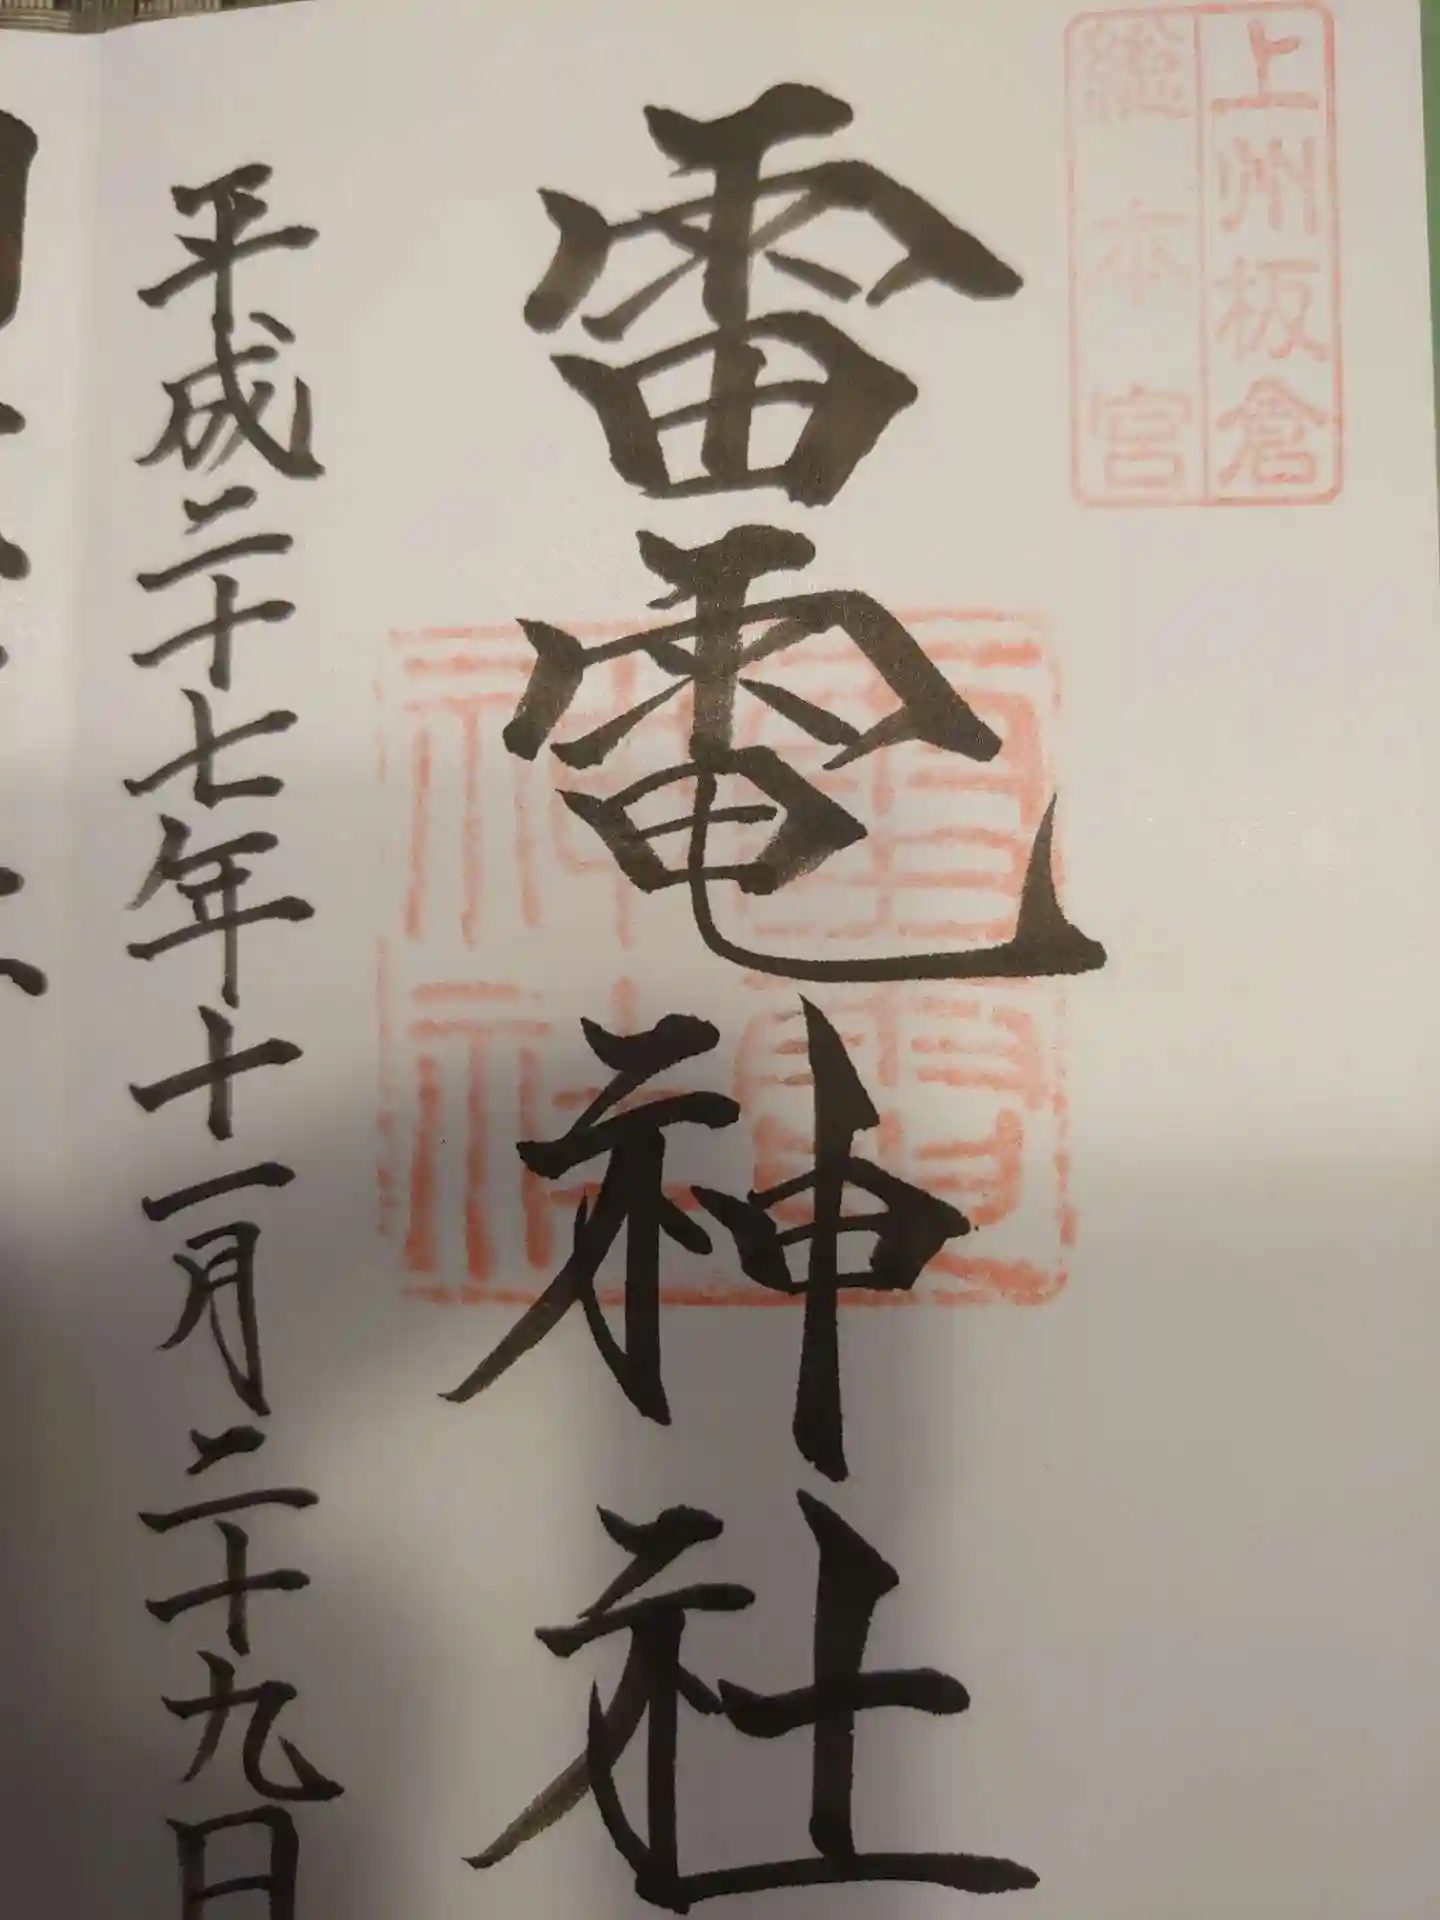 上州板倉
総本宮
雷電神社
雷電神社
平成二十七年十一月二十九日